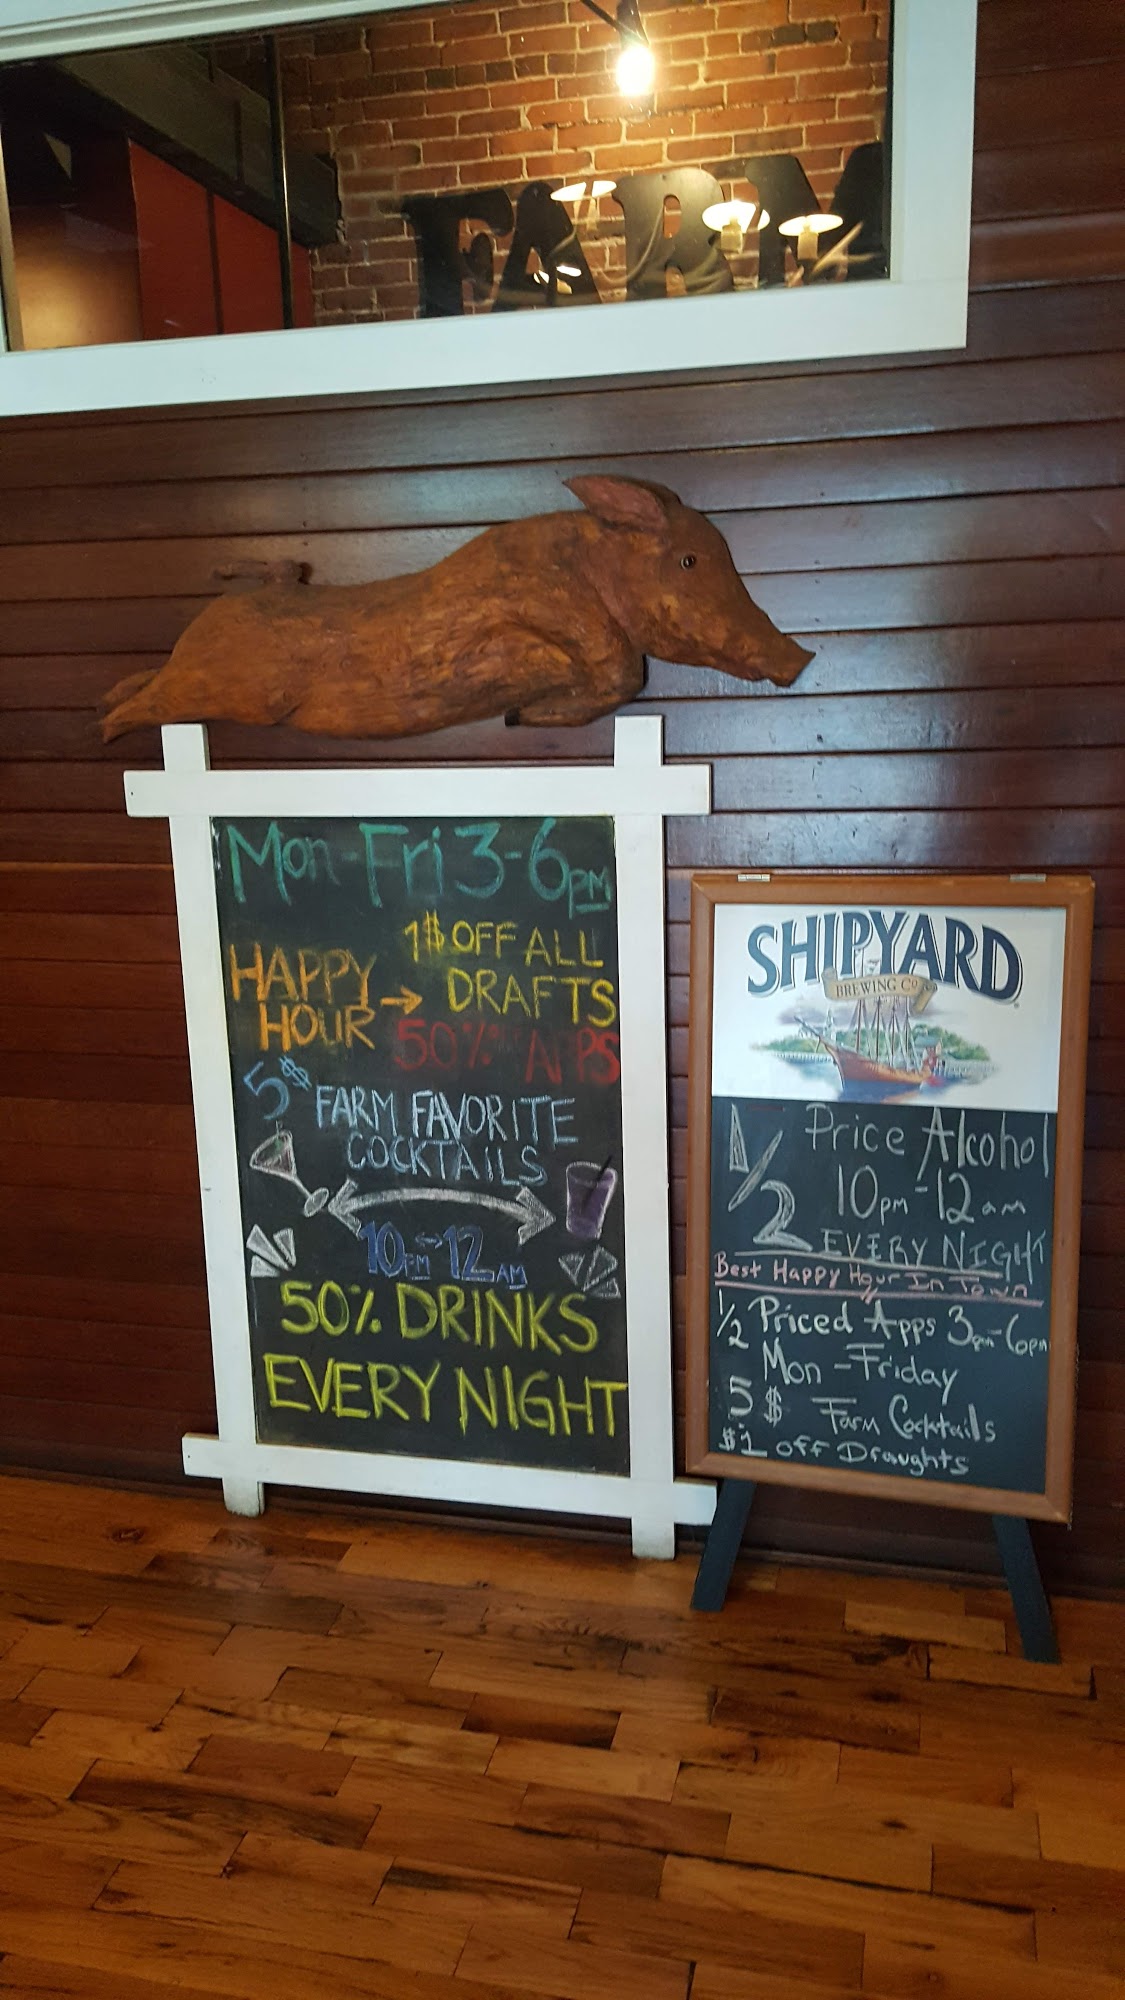 FARM
Mon-Fri 3-6PM
HAPPY HOUR →
1$ OFF ALL
DRAFTS
50% APPS
5$ FARM FAVORITE
COCKTAILS
10PM-12AM
50% DRINKS
EVERY NIGHT
SHIPYARD
BREWING CO
1/2 Price Alcohol
10pm-12am
EVERY NIGHT
Best Happy Hour In Town
1/2 Priced Apps 3pm-6pm
Mon-Friday
5$ Farm Cocktails
$1 off Draughts